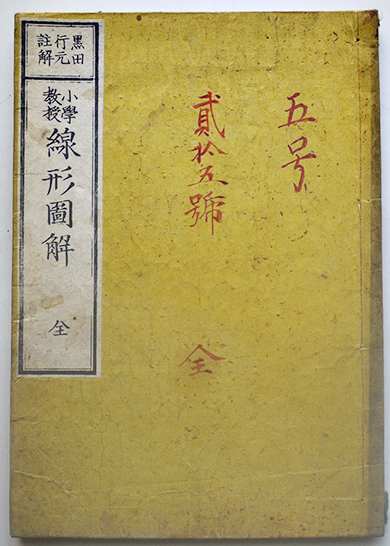 五号
貳拾五號
全
黒田
行元
註解
小學
教授
線形圖解
全